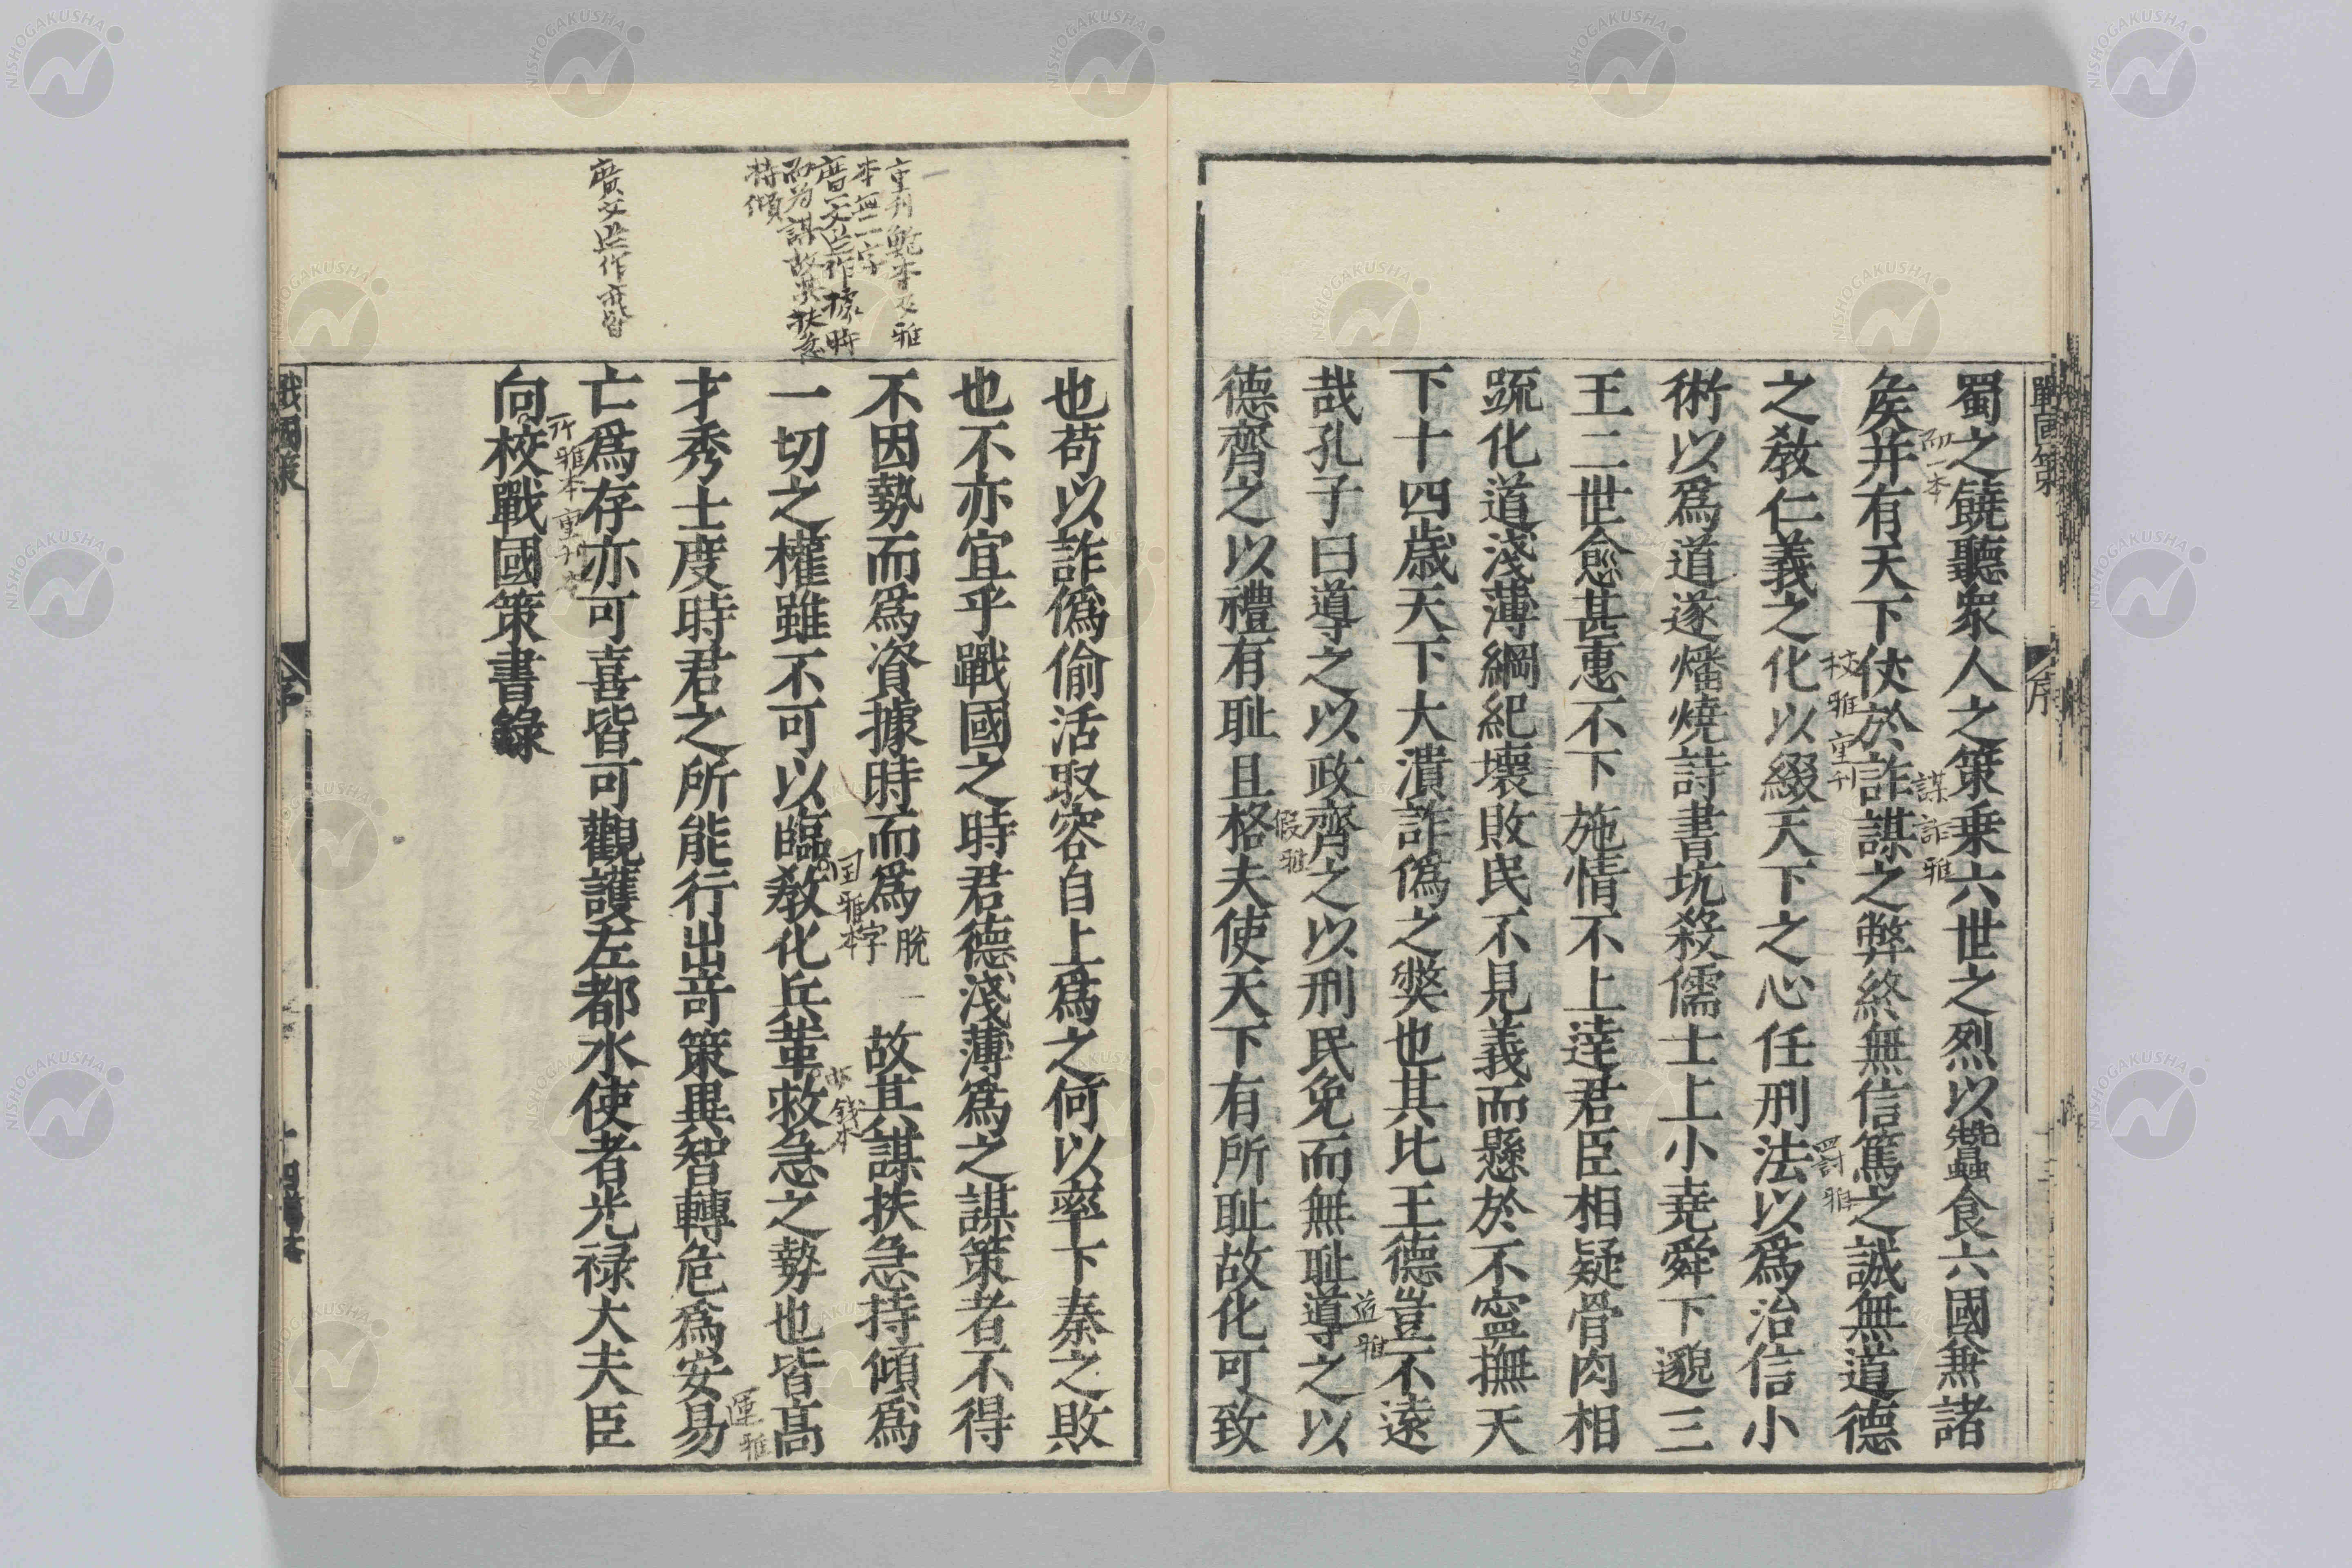 戰國策
序
蜀之饒聽衆人之策乗六世之烈以蠶食六國兼諸
矦并有天下伏於詐謀之弊終無信篤之誠無道德
而一本
謀詐雅
之敎仁義之化以綴天下之心任刑法以爲治信小
校雅重刊
罰雅
術以爲道遂燔燒詩書坑殺儒士上小堯舜下邈三
王二世愈甚惠不下施情不上逹君臣相疑骨肉相
䟽化道淺薄綱紀壞敗民不見義而懸於不寧撫天
下十四歳天下大潰詐僞之獘也其比王德豈不遠
哉孔子曰導之以政齊之以刑民免而無耻導之以
道雅
德齊之以禮有耻且格夫使天下有所耻故化可致
假雅
也苟以詐僞偷活取容自上爲之何以率下秦之敗
也不亦宜乎戰國之時君德淺薄爲之謀策者不得
重刊鮑本及雅
本無一字
曆文此作據時
而为謀故其扶急
持傾
不因勢而爲資據時而爲 故其謀扶急持傾爲
脫字
一切之權雖不可以臨敎化兵革救急之勢也皆高
国雅本
亦錢本
才秀士度時君之所能行出竒策異智轉危爲安易
運雅
亡爲存亦可喜皆可觀護左都水使者光禄大夫臣
向校戰國策書錄
所雅本重刊本
戰國策
序